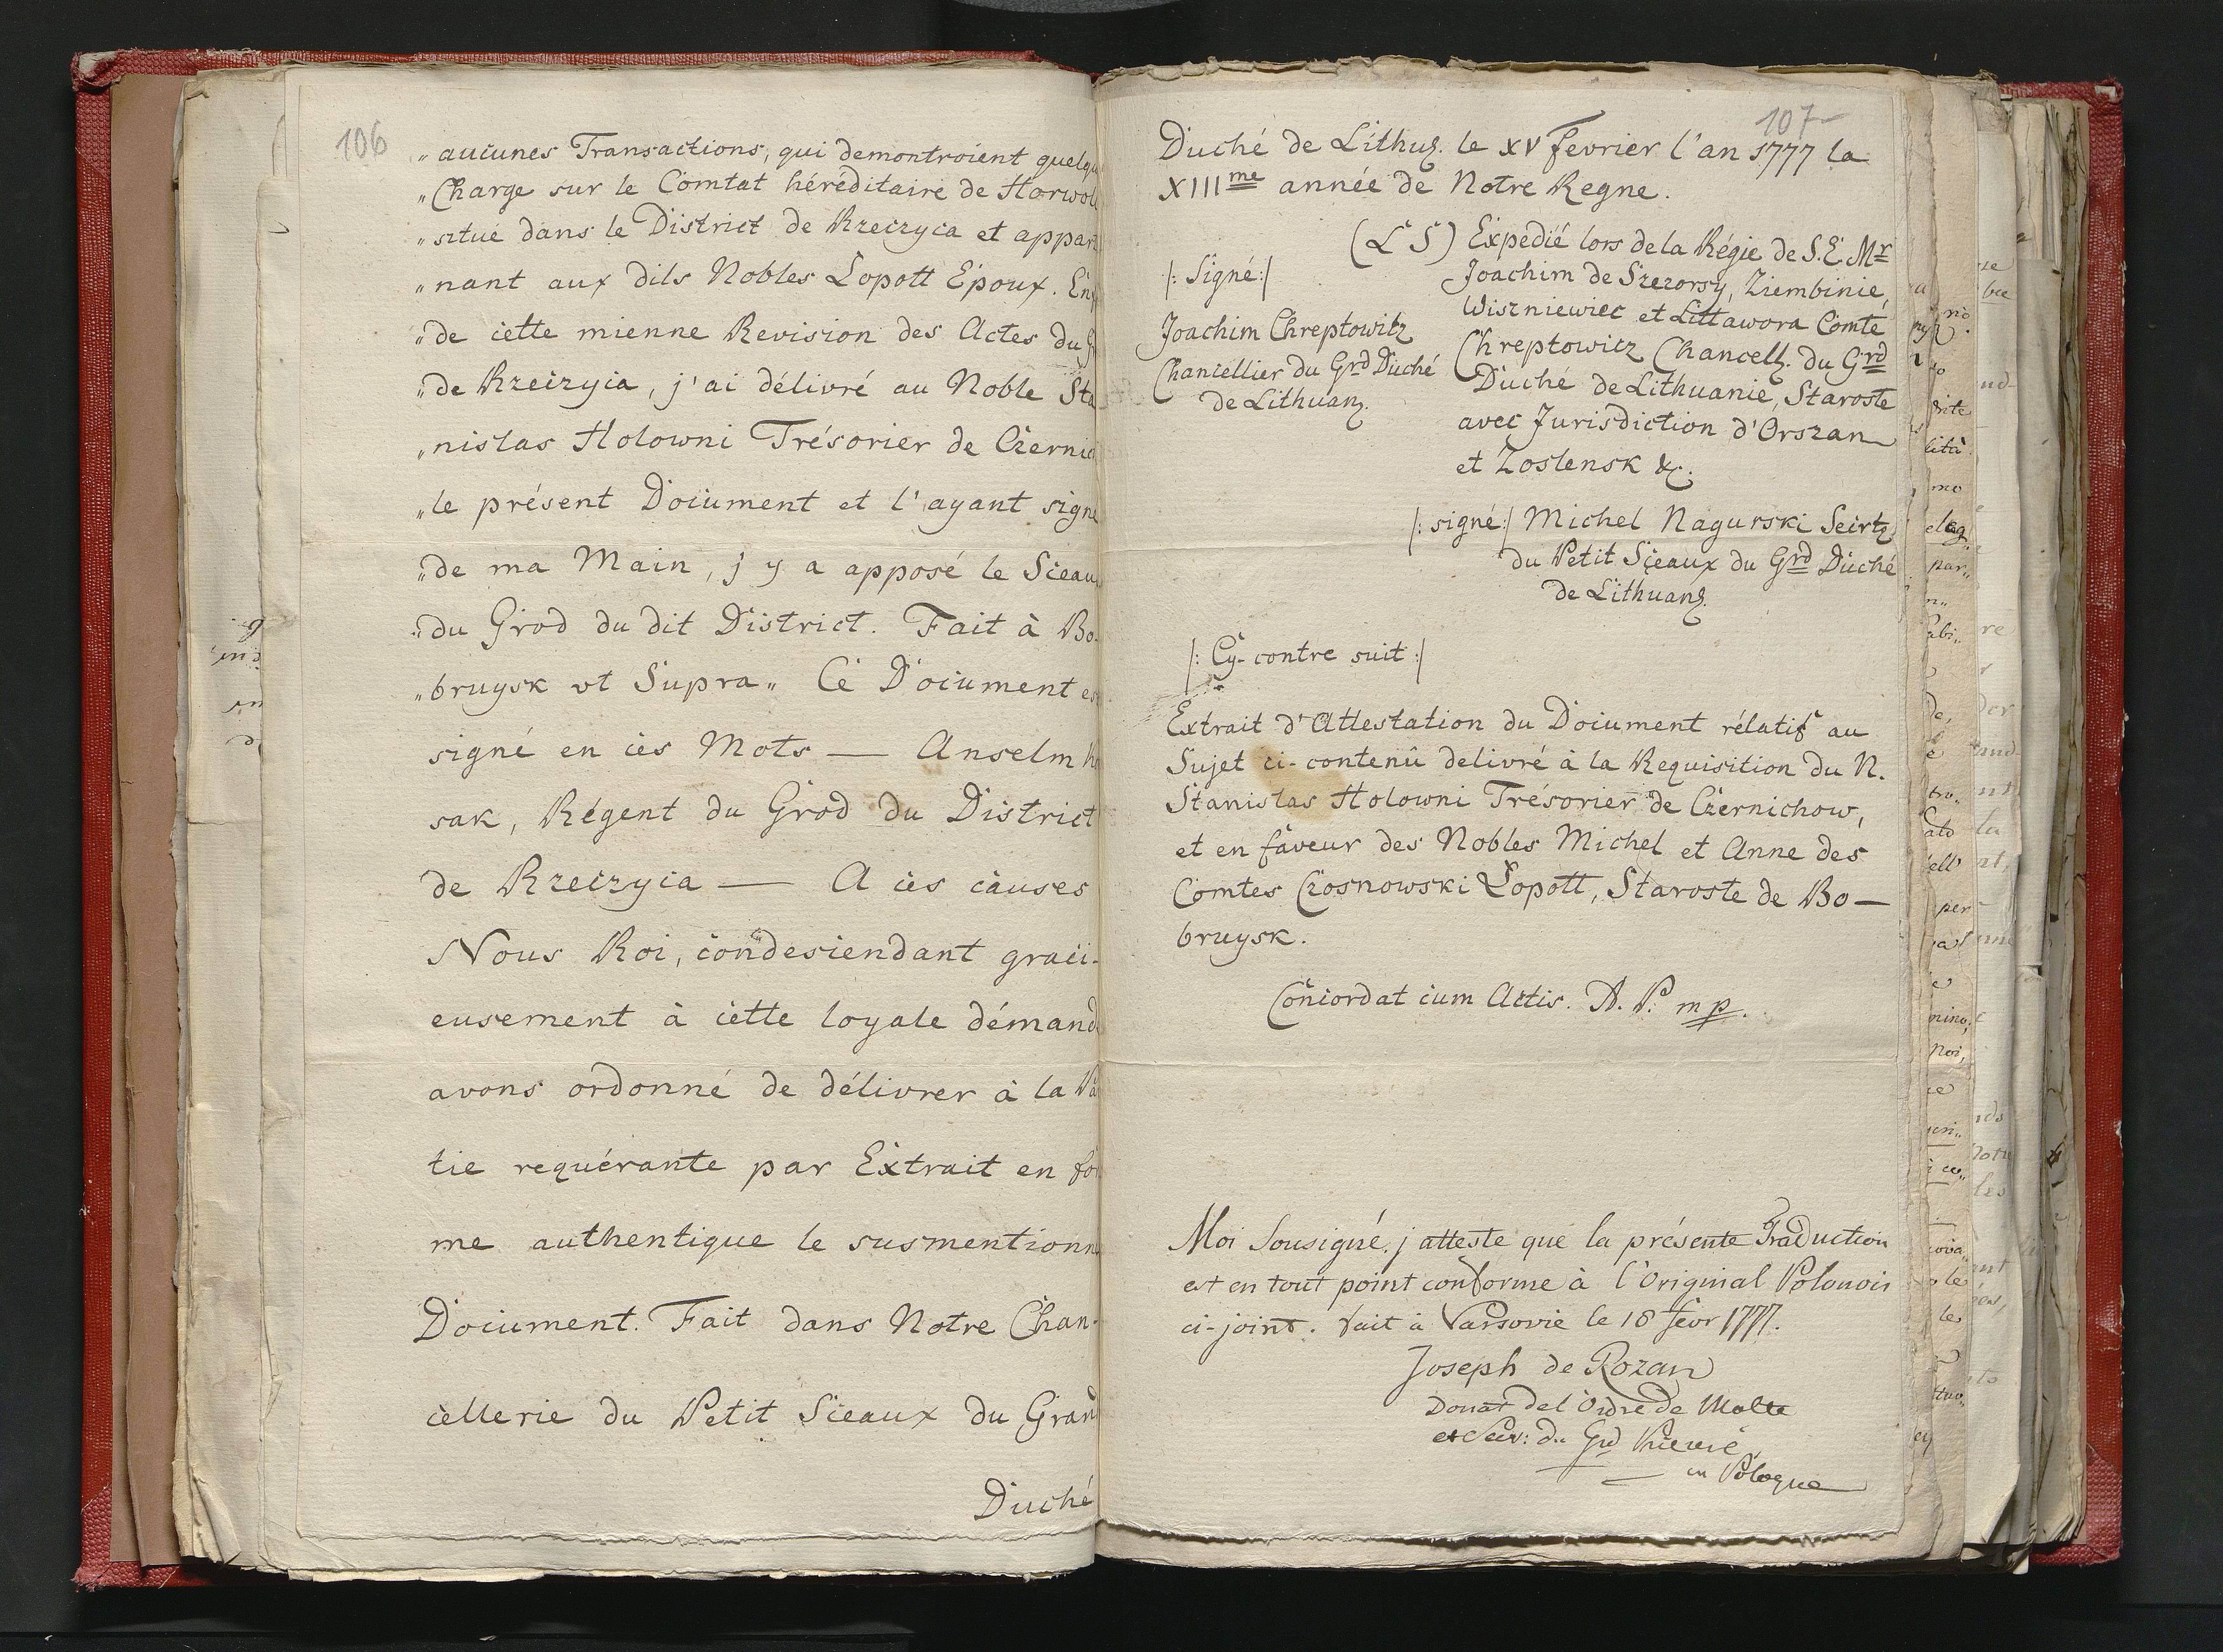 106
„aucunes Transactions, qui demontroient quelqu
„Charge sur le Comtat héréditaire de Horwol
„situé dans le District de Rzeczyca et appar
„nant aux dits Nobles Lopott Epoux. En
„de cette mienne Revision des Actes du G
„de Rzeczycia, j'ai délivré au Noble Sta
„nislas Holowni Trésorier de Czernic
„le présent Document et l'ayant signé
„de ma Main, j y a apposé le Sceau
„du Grod du dit District. Fait à Bo-
„bruysk ut Supra„ Ce Document es
signé en ces Mots — Anselm
sak, Régent du Grod du District
de Rzeczycia — A ces causes
Nous Roi, condescendant graci-
eusement à cette loyale démand
avons ordonné de délivrer à la Pa
tie requérante par Extrait en for
me authentique le susmentionn
Document. Fait dans Notre Chan-
cellerie du Petit Sceaux du Grand
Duché
107
Duché de Lithuȝ. le XV Fevrier l'an 1777 la
XIIIme année de Notre Regne.
(LS) Expedié lors de la Régie de S.E. Mr
Joachim de Szczorsy, Ziembinie,
Wiszniewiec et Littawora Comte
Chreptowicz Chancell. du Grd
Duché de Lithuanie, Staroste
avec Jurisdiction d'Orszan
et Zoslensk &c.
|: Signé :|
Joachim Chreptowitz
Chancellier du Grd Duché
de Lithuan.
|: signé :| Michel Nagurski Secrt
du Petit Sceaux du Grd Duché
de Lithuan.
|: Cy-contre suit :|
Extrait d'Attestation du Document rélatif au
Sujet ci-contenû delivré à la Requisition du N.
Stanislas Holowni Trésorier de Czernichow,
et en faveur des Nobles Michel et Anne des
Comtes Czosnowski Lopott, Staroste de Bo—
bruysk.
Concordat cum Actis. A. P. mp.
Moi Sousigné, j atteste que la présente Traduction
est en tout point conforme à l'Original Polonois
ci-joint. fait à Varsovie le 18 fevr 1777.
Joseph de Rozan
Donat del Ordre de Malte
et Secr: du Grd Prieuré
en Pologne